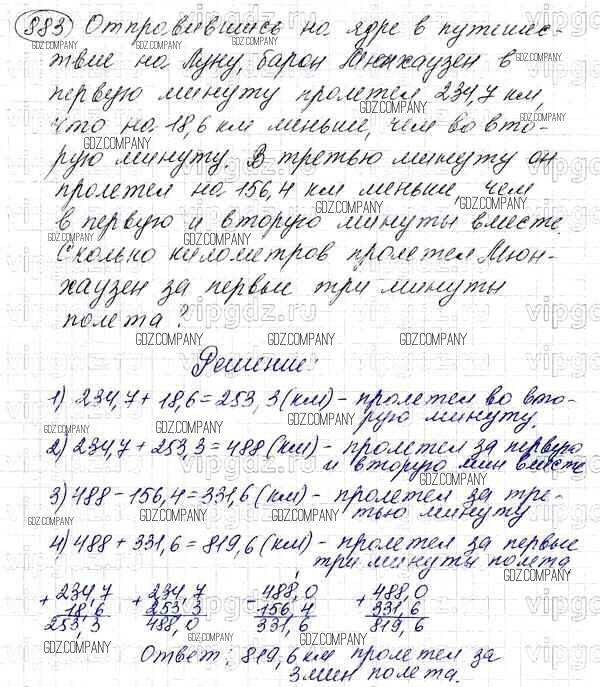 883 Отправившись на ядре в путешес-
твие на Луну, барон Мюнхаузен в
первую минуту пролетел 234,7 км,
что на 18,6 км меньше, чем во вто-
рую минуту. В третью минуту он
пролетел на 156,4 км меньше, чем
в первую и вторую минуты вместе.
Сколько километров пролетел Мюн-
хаузен за первые три минуты
полета?
Решение:
1) 234,7 + 18,6 = 253,3 (км) - пролетел во вто-
рую минуту.
2) 234,7 + 253,3 = 488 (км) - пролетел за первую
и вторую мин вместе
3) 488 - 156,4 = 331,6 (км) - пролетел за тре-
тью минуту
4) 488 + 331,6 = 819,6 (км) - пролетел за первые
три минуты полета
+ 234,7 + 234,7 - 488,0 + 488,0
18,6 253,3 156,4 331,6
253,3 488,0 331,6 819,6
Ответ: 819,6 км пролетел за
3 мин полета.
GDZ.COMPANY
vipgdz.ru